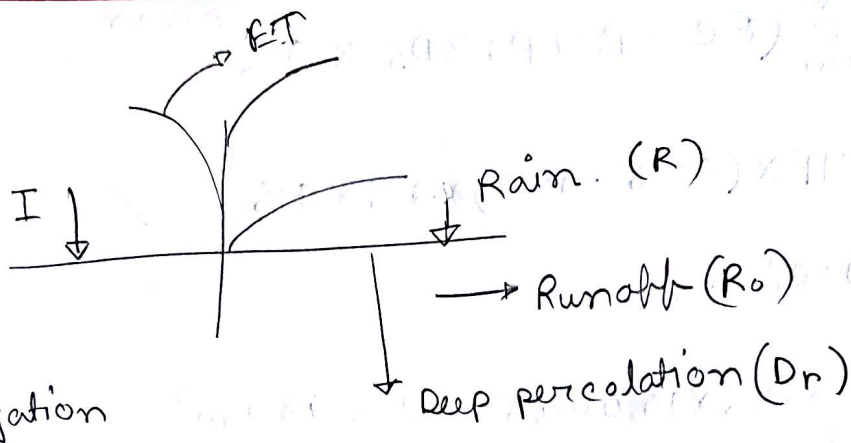 ET
I
Rain. (R)
Runoff (Ro)
Deep percolation (Dr)
gation